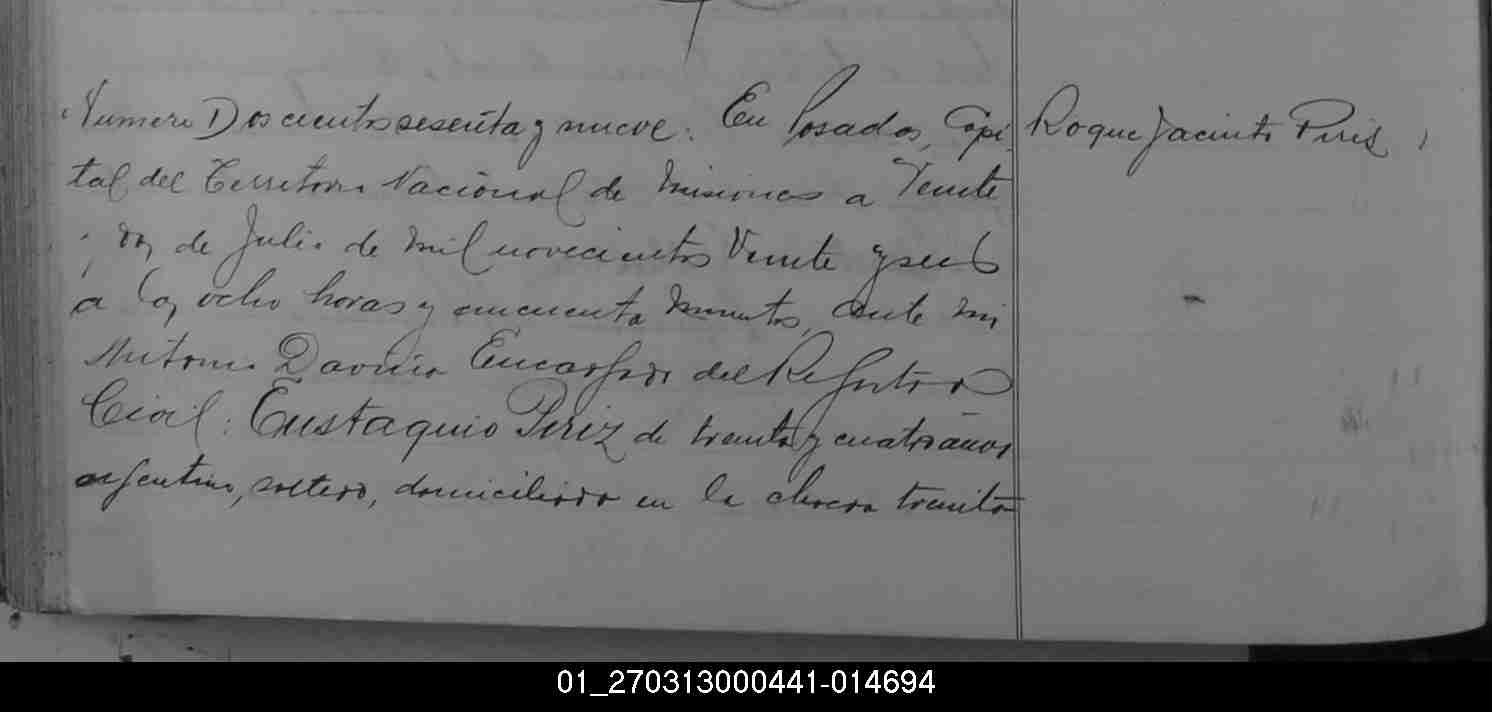 Numero Doscientos sesenta y nueve. En Posadas, Capi
tal del Territorio Nacional de Misiones a Veinte
y de Julio de mil novecientos Veinte y seis
a las ocho horas y cincuenta minutos, ante mi
Antonio Encargado del Registro
Civil: Eustaquio Periz de treinta y cuatro años
argentino, soltero, domiciliado en la chacra treinta
Roque Jacinto Piris
01_270313000441-014694